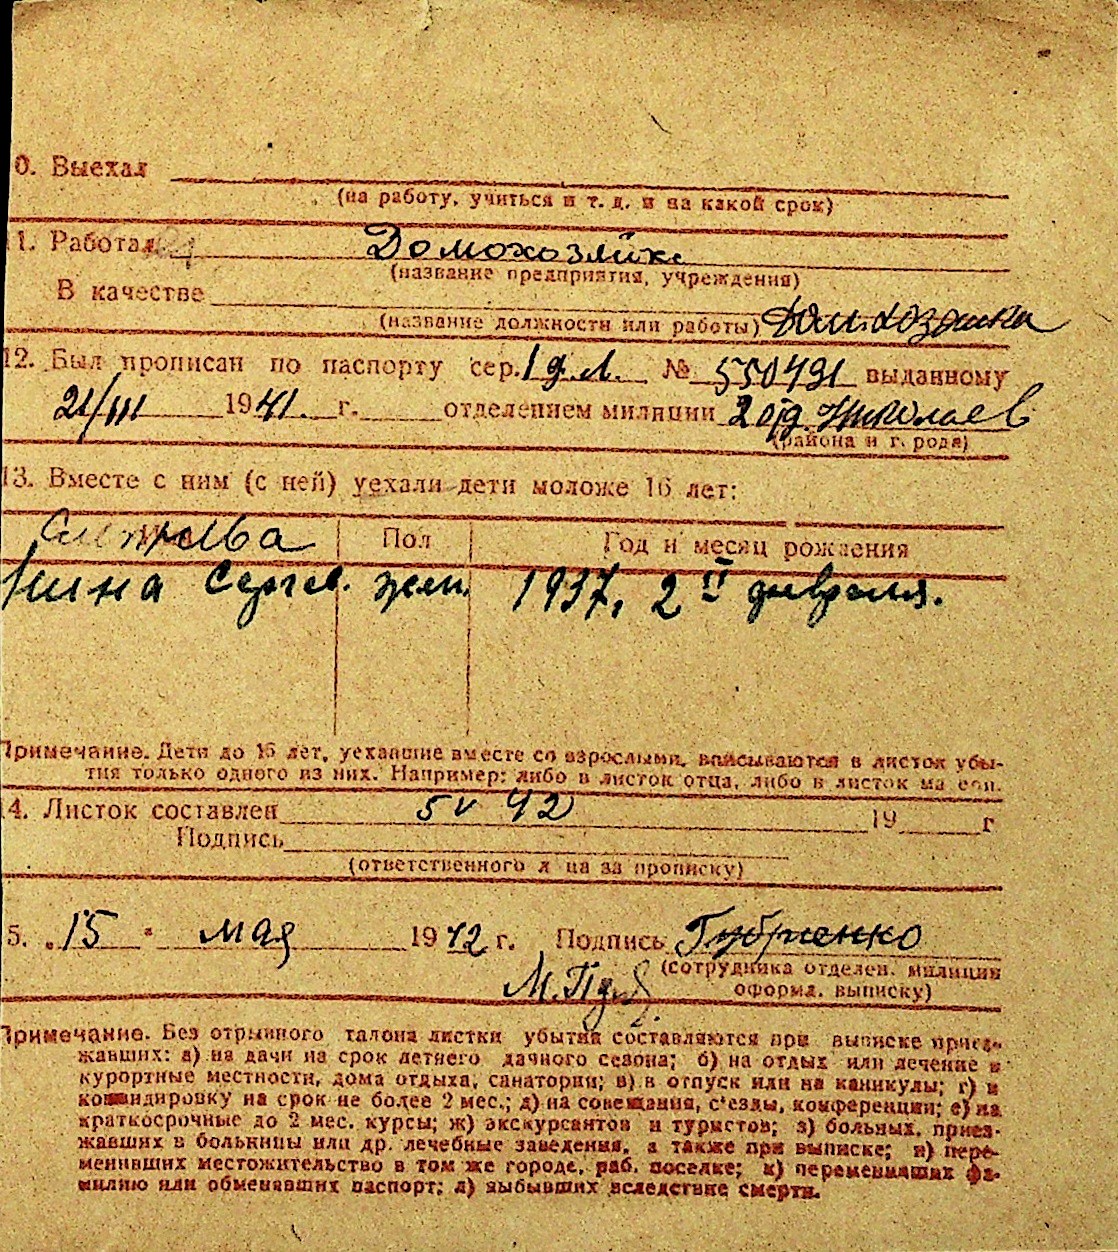 0. Выехал
(на работу, учиться и т. д. и на какой срок)
1. Работал Домохозяйка
(название предприятия, учреждения)
В качестве
(название должности или работы) Домохозяйка
12. Был прописан по паспорту сер. № 550491 выданному
21/III 1941. г. отделением милиции 2 Николаев
(района и города)
13. Вместе с ним (с ней) уехали дети моложе 16 лет:
Пол Год и месяц рождения
Нина Сергев. жен. 1937, 2 II февраля.
Примечание. Дети до 16 лет, уехавшие вместе со взрослыми, вписываются в листок убы-
тия только одного из них. Например: либо в листок отца, либо в листок матери.
4. Листок составлен 5 V 42 19 г
Подпись
(ответственного лица за прописку)
5. „15" мая 1942 г. Подпись Губриенко
(сотрудника отделен. милиции
оформл. выписку)
Примечание. Без отрывного талона листки убытия составляются при выписке приез-
жавших: а) на дачи на срок летнего дачного сезона; б) на отдых или лечение в
курортные местности, дома отдыха, санатории; в) в отпуск или на каникулы; г) в
командировку на срок не более 2 мес.; д) на совещания, с'езды, конференции; е) на
краткосрочные до 2 мес. курсы; ж) экскурсантов и туристов; з) больных, приез-
жавших в больницы или др. лечебные заведения, а также при выписке; и) пере-
менивших местожительство в том же городе, раб. поселке; к) переменивших фа-
милию или обменявших паспорт; л) выбывших вследствие смерти.